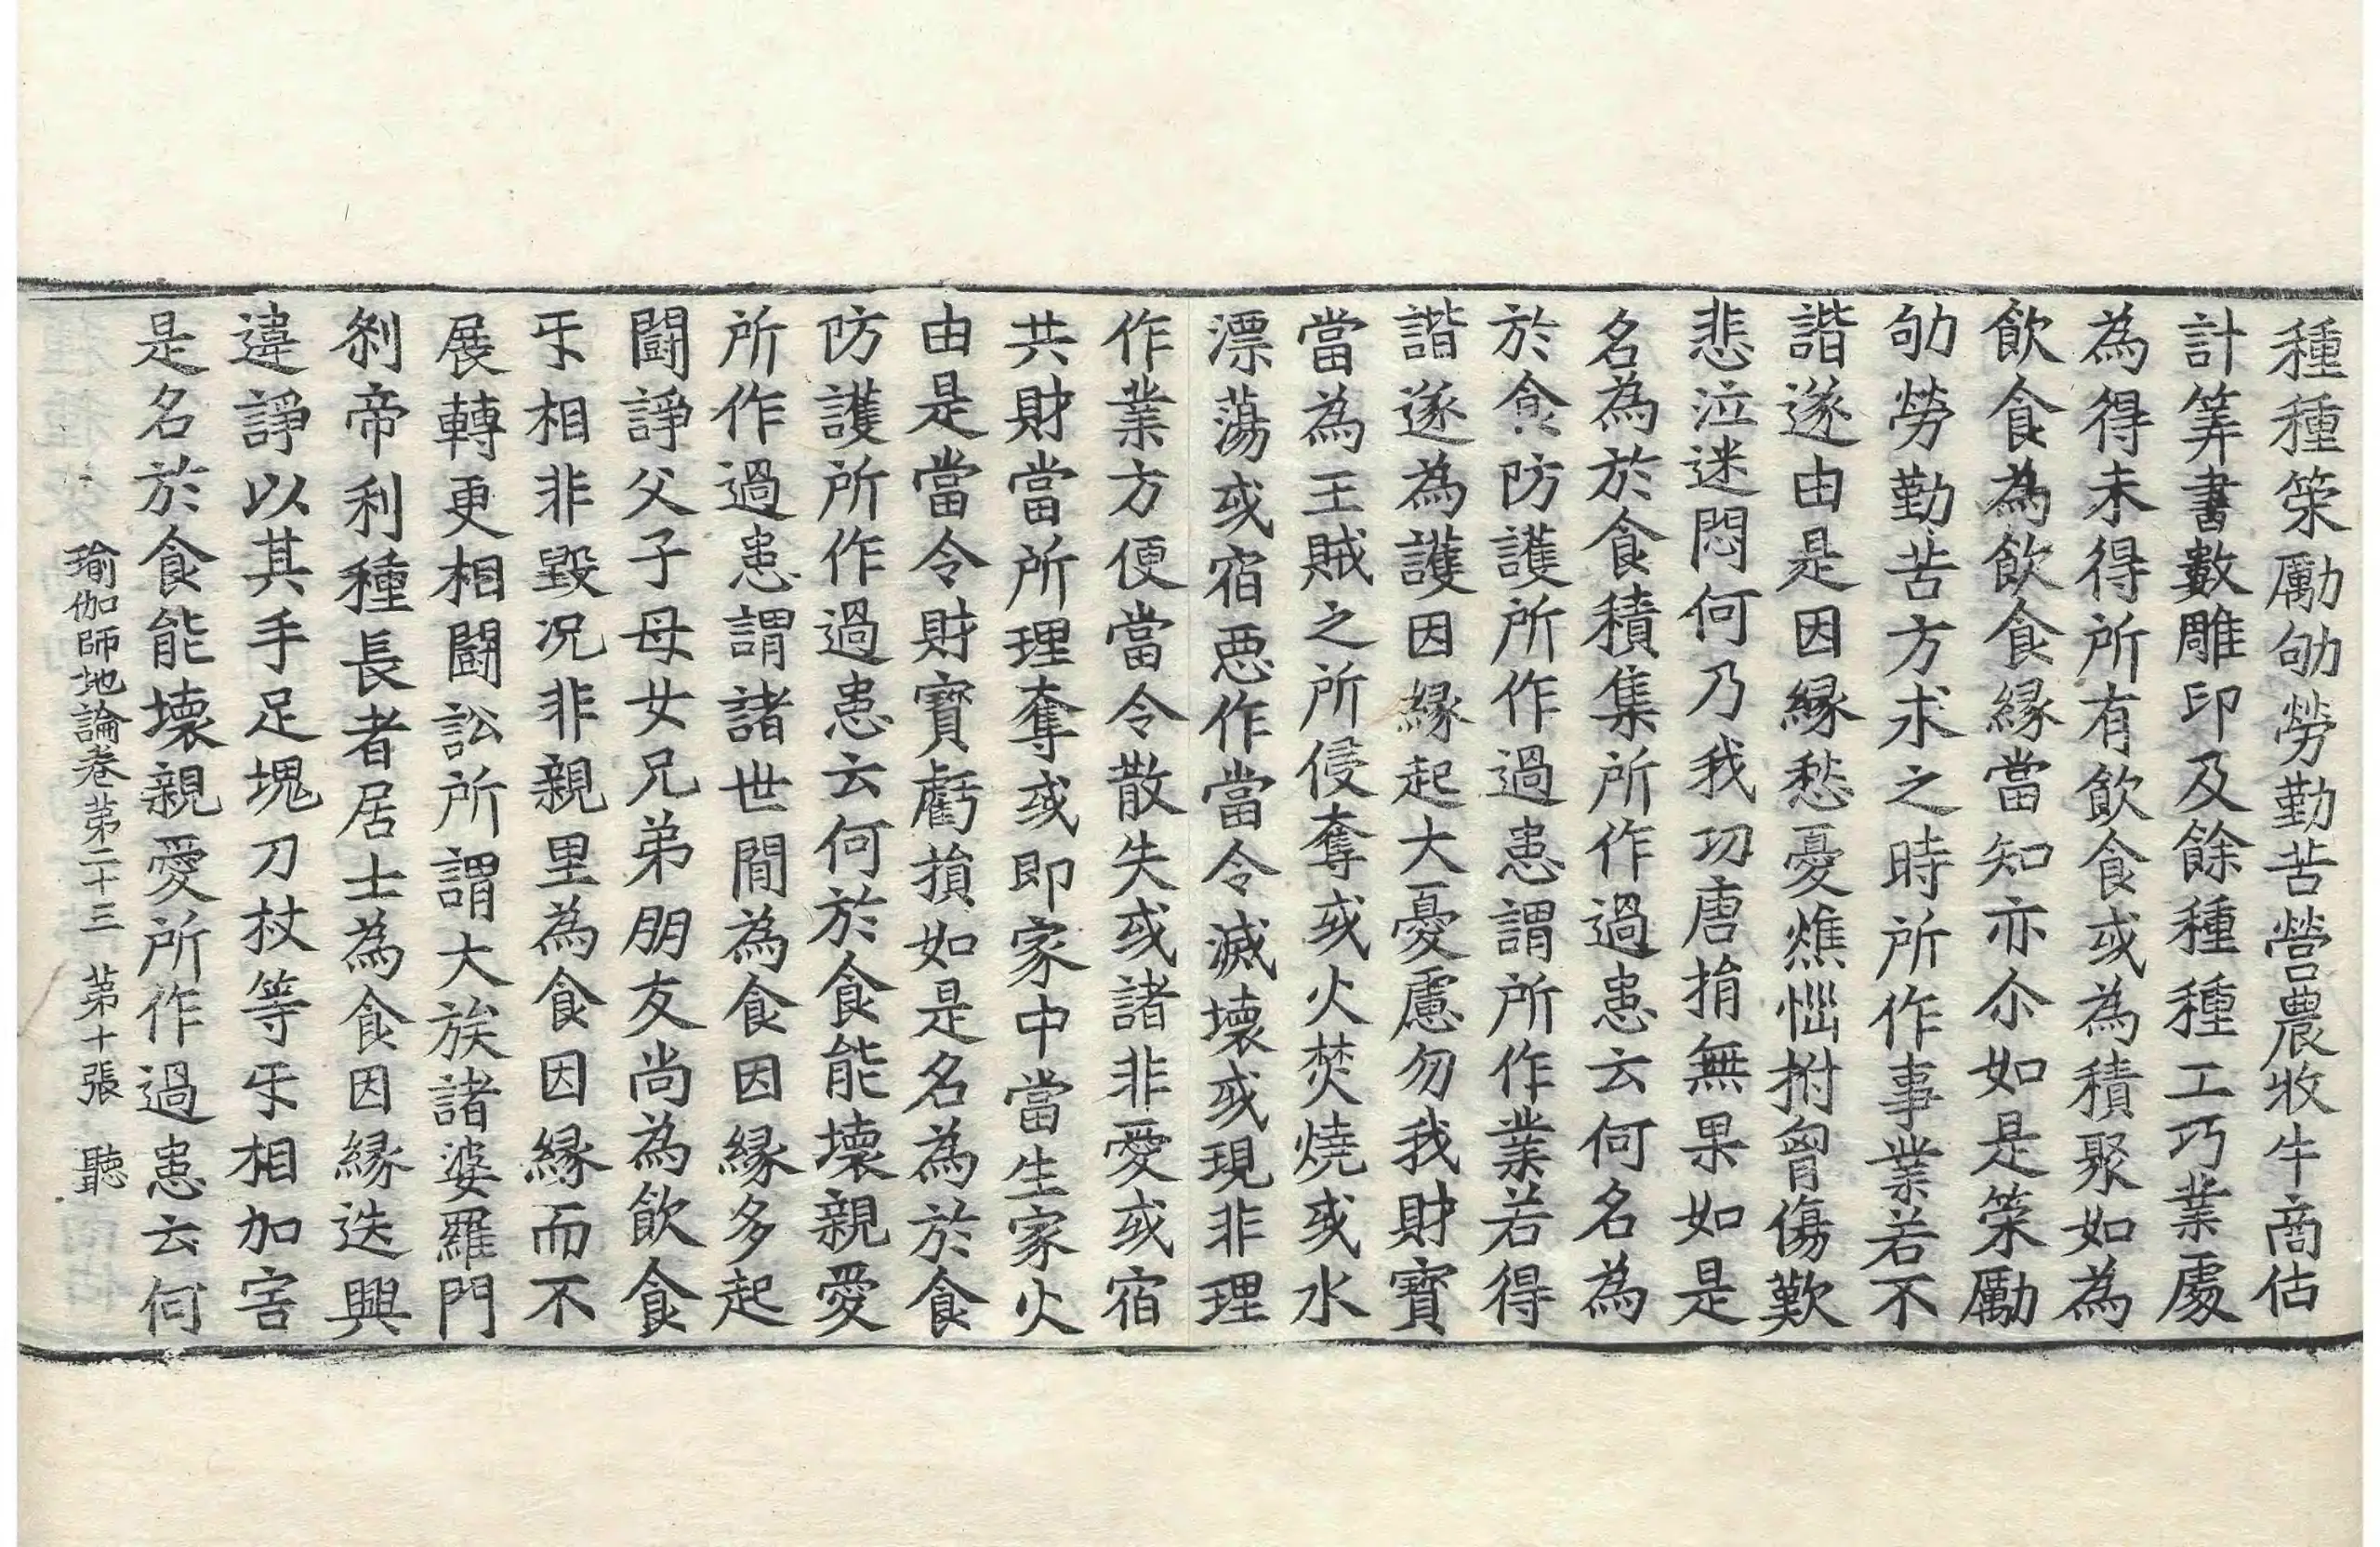 種種策勵劬勞勤苦營農牧牛商估
計筭書數雕印及餘種種工巧業處
為得未得所有飲食或為積聚如為
飲食為飲食緣當知亦尒如是策勵
劬勞勤苦方求之時所作事業若不
諧遂由是因緣愁憂燋惱拊胷傷歎
悲泣迷悶何乃我功唐捐無果如是
名為於食積集所作過患云何名為
於食防護所作過患謂所作業若得
諧遂為護因緣起大憂慮勿我財寶
當為王賊之所侵奪或火焚燒或水
漂蕩或宿惡作當令滅壞或現非理
作業方便當令散失或諸非愛或宿
共財當所理奪或即家中當生家火
由是當令財寶虧損如是名為於食
防護所作過患云何於食能壞親愛
所作過患謂諸世間為食因緣多起
鬪諍父子母女兄弟朋友尚為飲食
㸦相非毀况非親里為食因緣而不
展轉更相鬪訟所謂大族諸婆羅門
剎帝利種長者居士為食因緣迭興
違諍以其手足塊刀杖等㸦相加害
是名於食能壞親愛所作過患云何
瑜伽師地論卷第二十三 第十張 聽